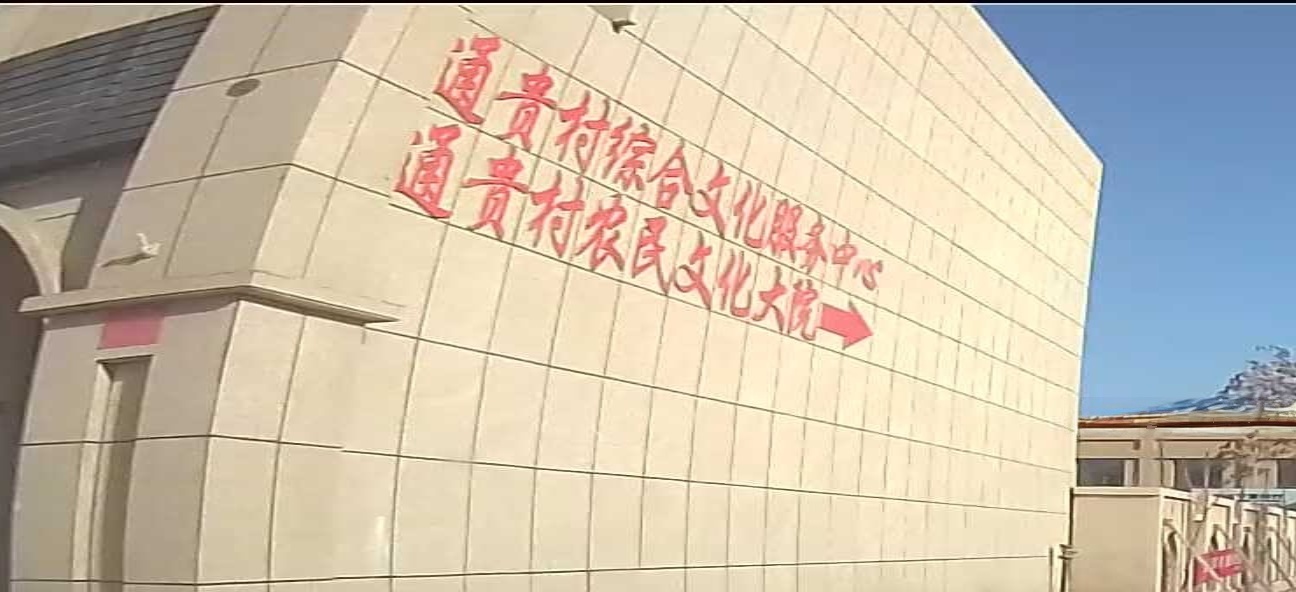 通贵村综合文化服务中心
通贵村农民文化大院